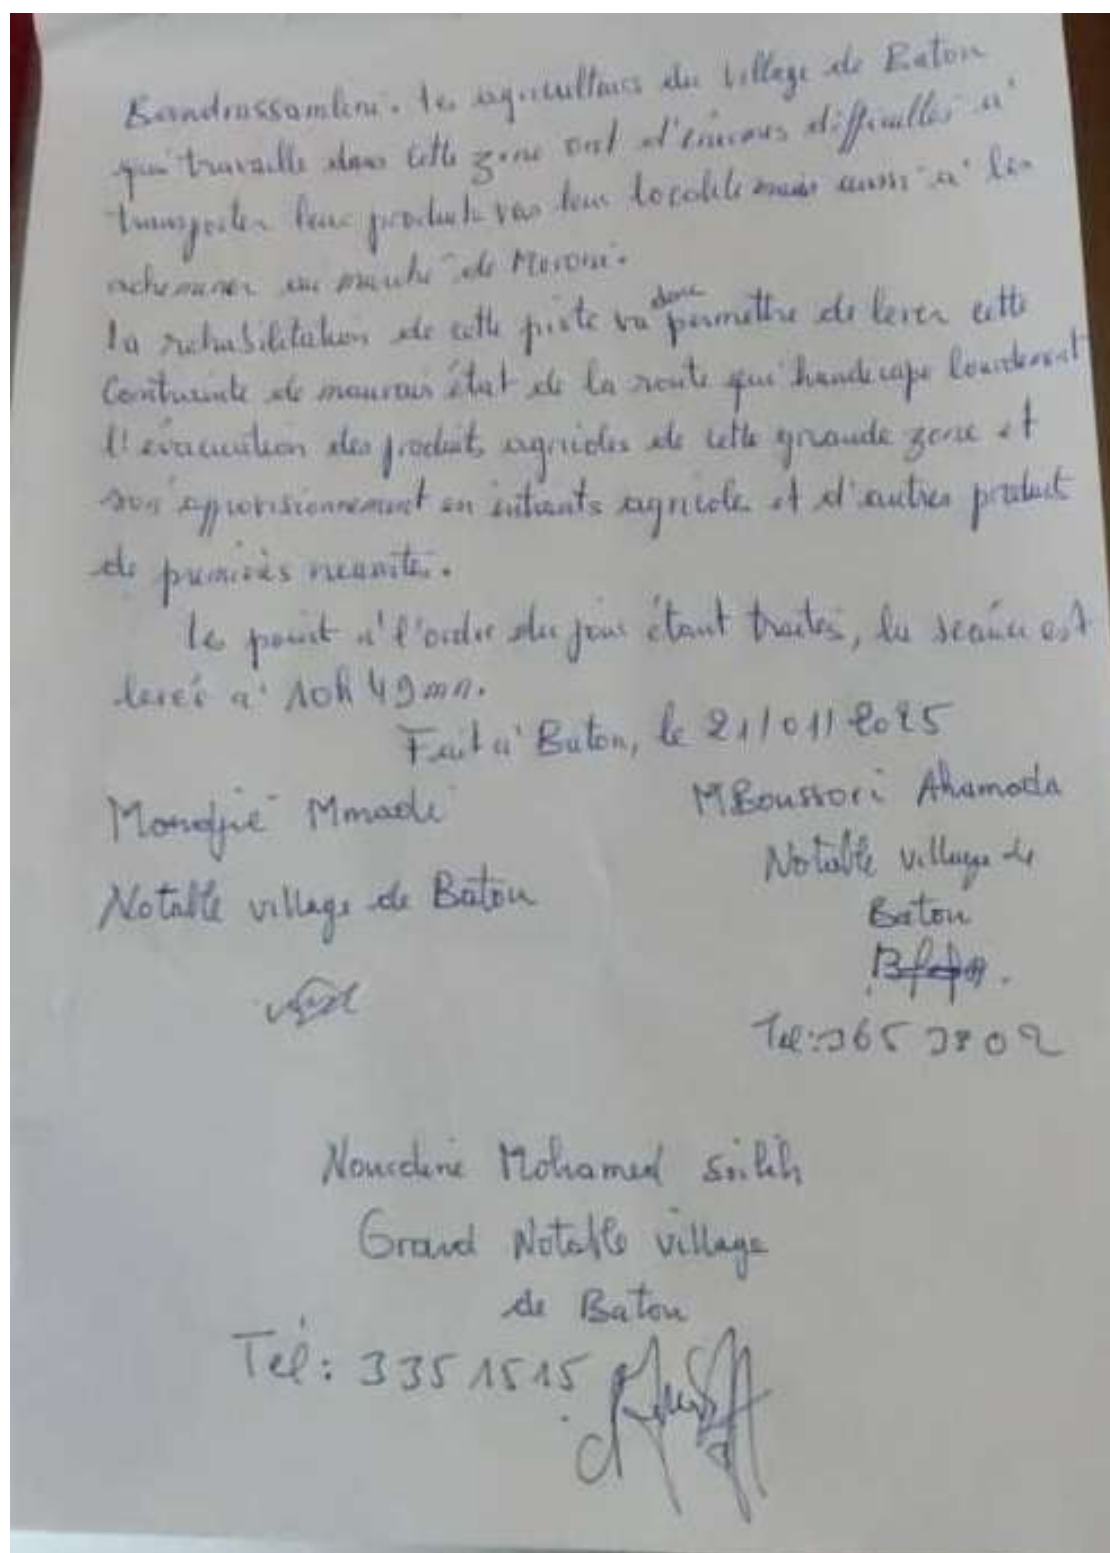 Bandrassamlini. les agriculteurs du village de Baton
qui travaille dans cette zone ont d'énormes difficultés à
transporter leur produits vers leur localité mais aussi à les
acheminer au marché de Moroni.
la rehabilitation de cette piste va donc permettre de lever cette
Contrainte de mauvais état de la route qui handicape lourdement
l'évacuation des produits agricoles de cette grande zone et
son approvisionnement en intrants agricole et d'autres produit
de premières
le point à l'ordre du jour étant traités, la seance est
levée à 10h 49mn.
Fait à Baton, le 21/01/2025
Mondjié Mmadi
MBoussori Ahamada
Notable village de Baton
Notable village de
Baton
Tel: 365 3802
Nourdine Mohamed Soilih
Grand Notable village
de Baton
Tel: 335 1515